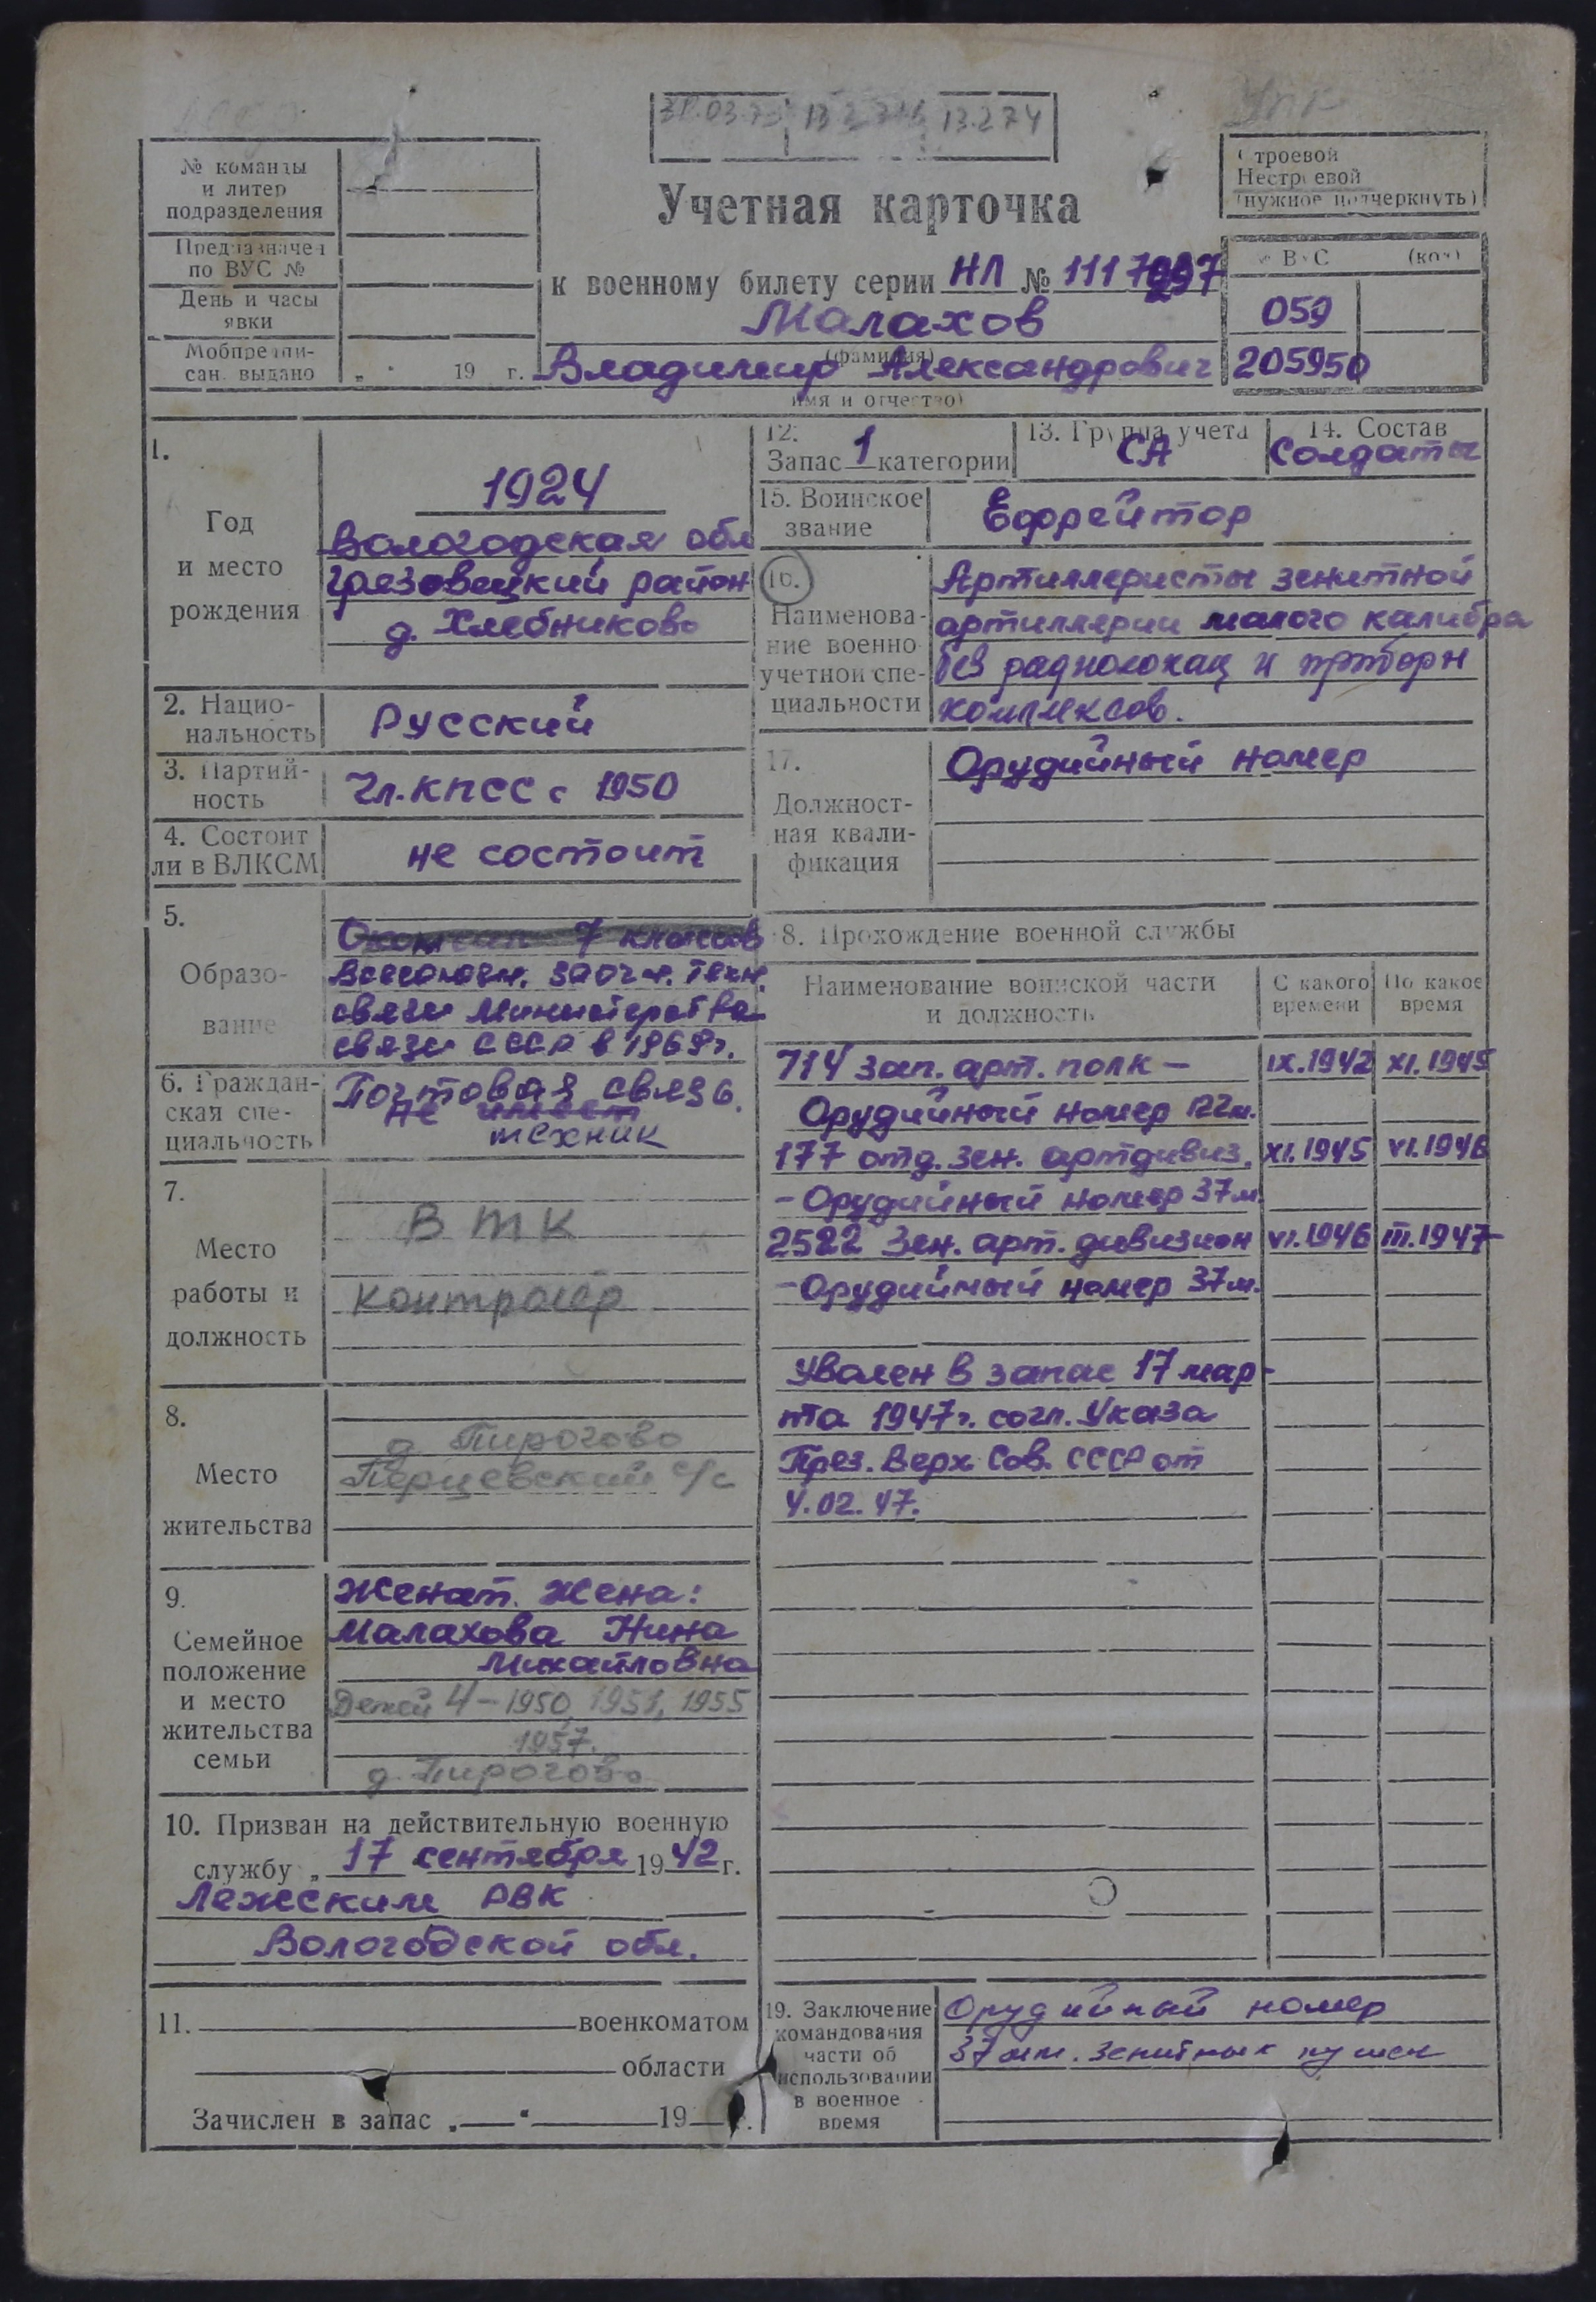 31.03.73 13.2.74
№ команды
и литер
подразделения
Предназначен
по ВУС №
День и часы
явки
Мобпредпи-
сан. выдано „ " 19 г.
Учетная карточка
к военному билету серии НЛ № 
Малахов
(фамилия)
Владимир Александрович
имя и отчество)
Строевой
Нестроевой
(нужное подчеркнуть)
№ ВУС (код)
059
205950
1.
Год
и место
рождения
1924
Вологодская обл
Грязовецкий район
д. Хлебниково
2. Нацио-
нальность
Русский
3. Партий-
ность
Чл. КПСС с 1950
4. Состоит
ли в ВЛКСМ
не состоит
5.
Образо-
вание
Окончил 7 классов
Всесоюзн. заочн. техн.
связи Министерства
связи СССР в 1968г.
6. Граждан-
ская спе-
циальность
Почтовая связь.
не имеет
техник
7.
Место
работы и
должность
ВТК
контролер
8.
Место
жительства
д. Пирогово
Перцевский с/с
9.
Семейное
положение
и место
жительства
семьи
Женат. Жена:
Малахова Нина
Михайловна
Детей 4 – 1950, 1951, 1955
1957.
д. Пирогово
10. Призван на действительную военную
службу „ 17 сентября 1942 г.
Лежским РВК
Вологодской обл.
11. военкоматом
области
Зачислен в запас „ " 19 г.
12.
Запас 1 категории
13. Группа учета
СА
14. Состав
Солдаты
15. Воинское
звание
Ефрейтор
16.
Наименова-
ние военно
учетной спе-
циальности
Артиллеристы зенитной
артиллерии малого калибра
без радиолокац и приборн
комплексов.
17.
Должност-
ная квали-
фикация
Орудийный номер
18. Прохождение военной службы
Наименование воинской части
и должность
С какого
времени
По какое
время
714 зап. арт. полк – IX.1942 XI.1945
Орудийный номер 122м.
177 отд. зен. артдивиз. XI.1945 VI.1946
– Орудийный номер 37м.
2522 Зен. арт. дивизион VI.1946 III.1947
– Орудийный номер 37м.
Уволен в запас 17 мар-
та 1947г. согл. Указа
През. Верх. Сов. СССР от
4.02.47.
19. Заключение
командования
части об
использовании
в военное
время
Орудийный номер
37 мм. зенитных пушек